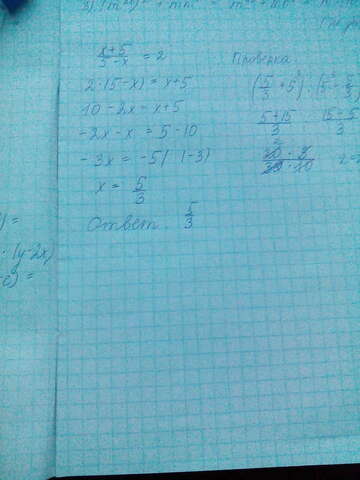 x+5 / 5-x = 2
2·(5-x) = x+5
10-2x = x+5
-2x-x = 5-10
-3x = -5 (:(-3)
x = 5/3
Ответ 5/3
Проверка
(5/3 + 5) : (5 - 5/3)
5+15 / 3 : 15-5 / 3
20 · 3 / 3 · 10
2=2
· (y-2x)